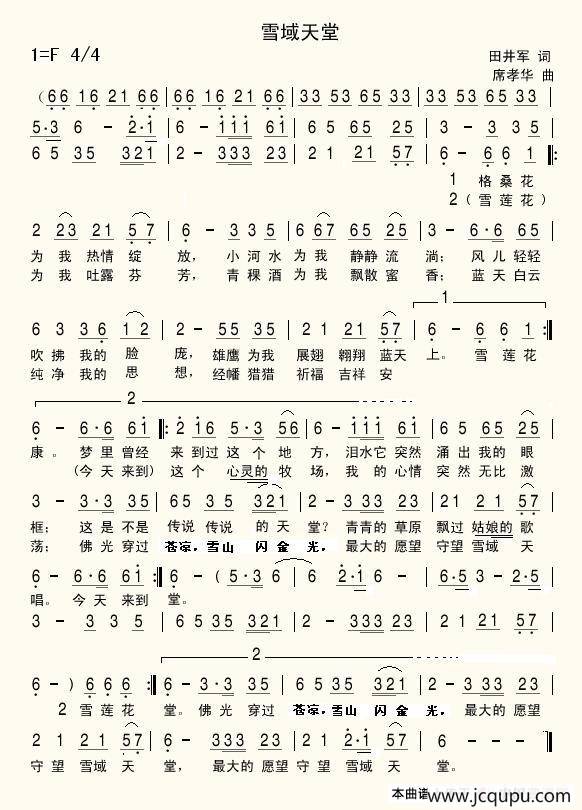 雪域天堂
1=F 4/4
田井军 词
席孝华 曲
(66 16 21 66 | 66 16 21 66 | 33 53 65 33 | 33 53 65 33 |
5·3 6 - 2·1 | 6 - 111 61 | 6 5 65 25 | 3 - 3 35 |
6 5 35 321 | 2 - 333 23 | 2 1 21 57 | 6 - 6 6 1 |:
1 格桑花
2(雪莲花)
2 23 21 57 | 6 - 3 35 | 6 67 65 25 | 3 - 6·6 65 |
为我 热情 绽 放, 小河水 为我 静静 流 淌; 风儿 轻轻
为我 吐露 芬 芳, 青稞酒 为我 飘散 蜜 香; 蓝天 白云
1
6 3 36 12 | 2 - 55 35 | 2 1 21 57 | 6 - 6 6 6 :|
吹拂 我的 脸 庞, 雄鹰 为我 展翅 翱翔 蓝天 上。 雪莲花
纯净 我的 思 想, 经幡 猎猎 祈福 吉祥 安
2
6 - 6·6 61 |: 2 16 5·3 56 | 6 - 111 61 | 6 5 65 25 |
康。 梦里 曾经 来到过 这个 地 方, 泪水它 突然 涌出 我的 眼
(今天 来到) 这个 心灵的 牧 场, 我的 心情 突然 无比 激
3 - 3·3 35 | 65 35 321 | 2 - 333 23 | 21 21 57 |
框; 这是 不是 传说 传说 的天 堂? 青青的 草原 飘过 姑娘的 歌
荡; 佛光 穿过 苍凉,雪山 闪金光, 最大的 愿望 守望 雪域 天
6 - 6·6 61 :| 6 - (5·3 | 6 - 2·1 6 | 6·5 3 - 2·5 |
唱。 今天 来到 堂。
3 - 33 5 | 6 5 35 321 | 2 - 333 23 | 2 1 21 57 |
2
6 -) 6 6 6 :| 6 - 3·3 35 | 6 5 35 321 | 2 - 333 23 |
2 雪莲花 堂。 佛光 穿过 苍凉,雪山 闪金光, 最大的 愿望
2 1 21 57 | 6 - 333 23 | 2 1 2·1 57 | 6 - - - ‖
守望 雪域 天 堂, 最大的 愿望 守望 雪域 天 堂。
本曲谱
www.jcqupu.com